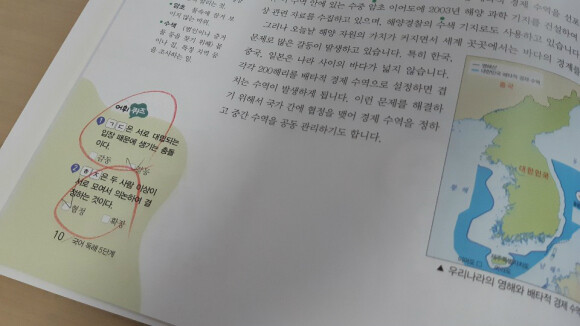 암초
물속에 잠겨 보
이지 않는 바위.
수색
(범인이나 증거
물 등을 찾기 위해) 물
건이나 집, 특정 지역 같은
을 조사하는 일.
수면 안에 있는 수중 암초 이어도에 2003년 해양 과학 기지를 건설하여
상 관련 자료를 수집하고 있으며, 해양경찰의 수색 기지로도 사용하고 있습니다
그러나 오늘날 해양 자원의 가치가 커지면서 세계 곳곳에서는 바다의 경계
문제로 많은 갈등이 발생하고 있습니다. 특히 한국,
중국, 일본은 나라 사이의 바다가 넓지 않습니다.
각각 200해리를 배타적 경제 수역으로 설정하면 겹
치는 수역이 발생하게 됩니다. 이런 문제를 해결하
기 위해서 국가 간에 협정을 맺어 경제 수역을 정하
고 중간 수역을 공동 관리하기도 합니다.
어휘 퀴즈
1 ㄱㄷ은 서로 대립되는
입장 때문에 생기는 충돌
이다.
갈등
2 ㅎㅈ은 두 사람 이상이
서로 모여서 의논하여 결
정하는 것이다.
협정 확정
10 국어 독해 5단계
중국
대한민국
동해
황해
▲ 우리나라의 영해와 배타적 경제 수역